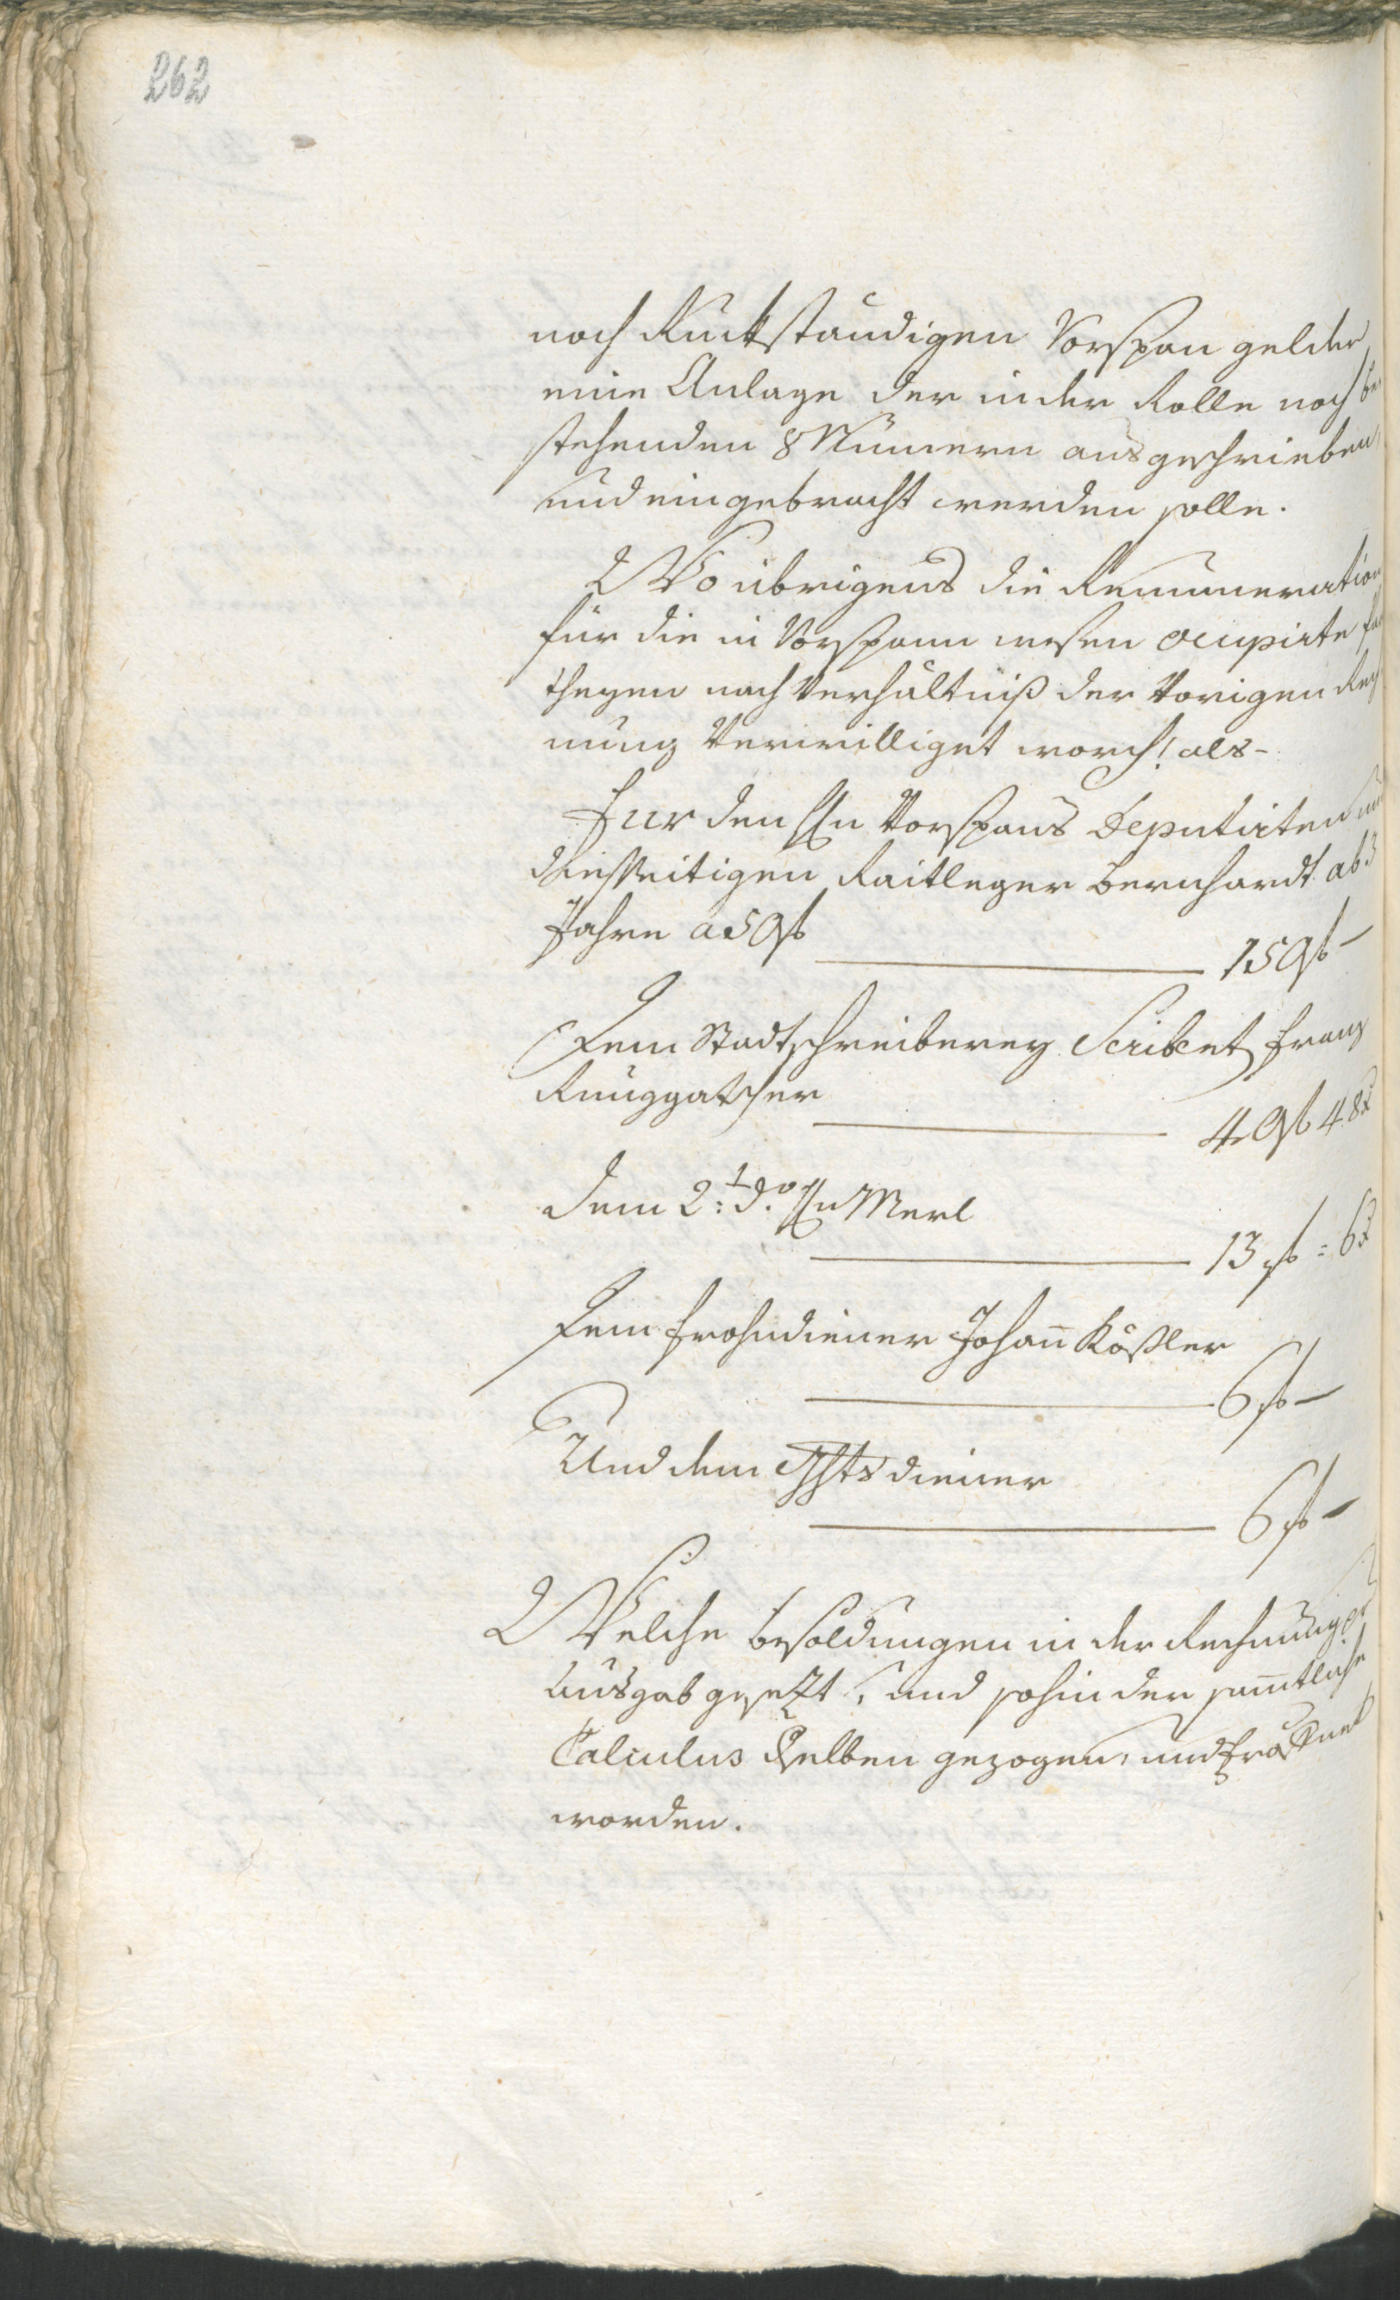 262
noch Ruckständigen Vorspan gelder
eine Anlage der in der Rolle noch be
stehenden 8 Numern ausgeschrieben,
und eingebracht werden solle.
Wo übrigens die Remuneration
für die in Vorspann wesen ocupirte
theyen nach Verhältniß der Vorigen Rech
nung Verwilliget word! als-
Fur den Hn Vorspans Deputirten
diesseitigen Raitleger Bernhardt ab 3
Jahre a 50 f
150 f -
Dem Stadtschreiberey Scribent Franz
Runggatscher
40 f 48 x
dem 2: do Hn Merl
13 f = 6 x
Dem Frohndiener Johan̄ Kößler
6 f -
Und dem Ghts diener
6 f -
Welche besoldungen in der Rechnung
Ausgab gesetzt, und sohin der sam̄tliche
Calculus deselben gezogen, und Eröffnet
worden.